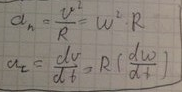 a_n = v²/R = w² · R
a_τ = dv/dt = R (dw/dt)